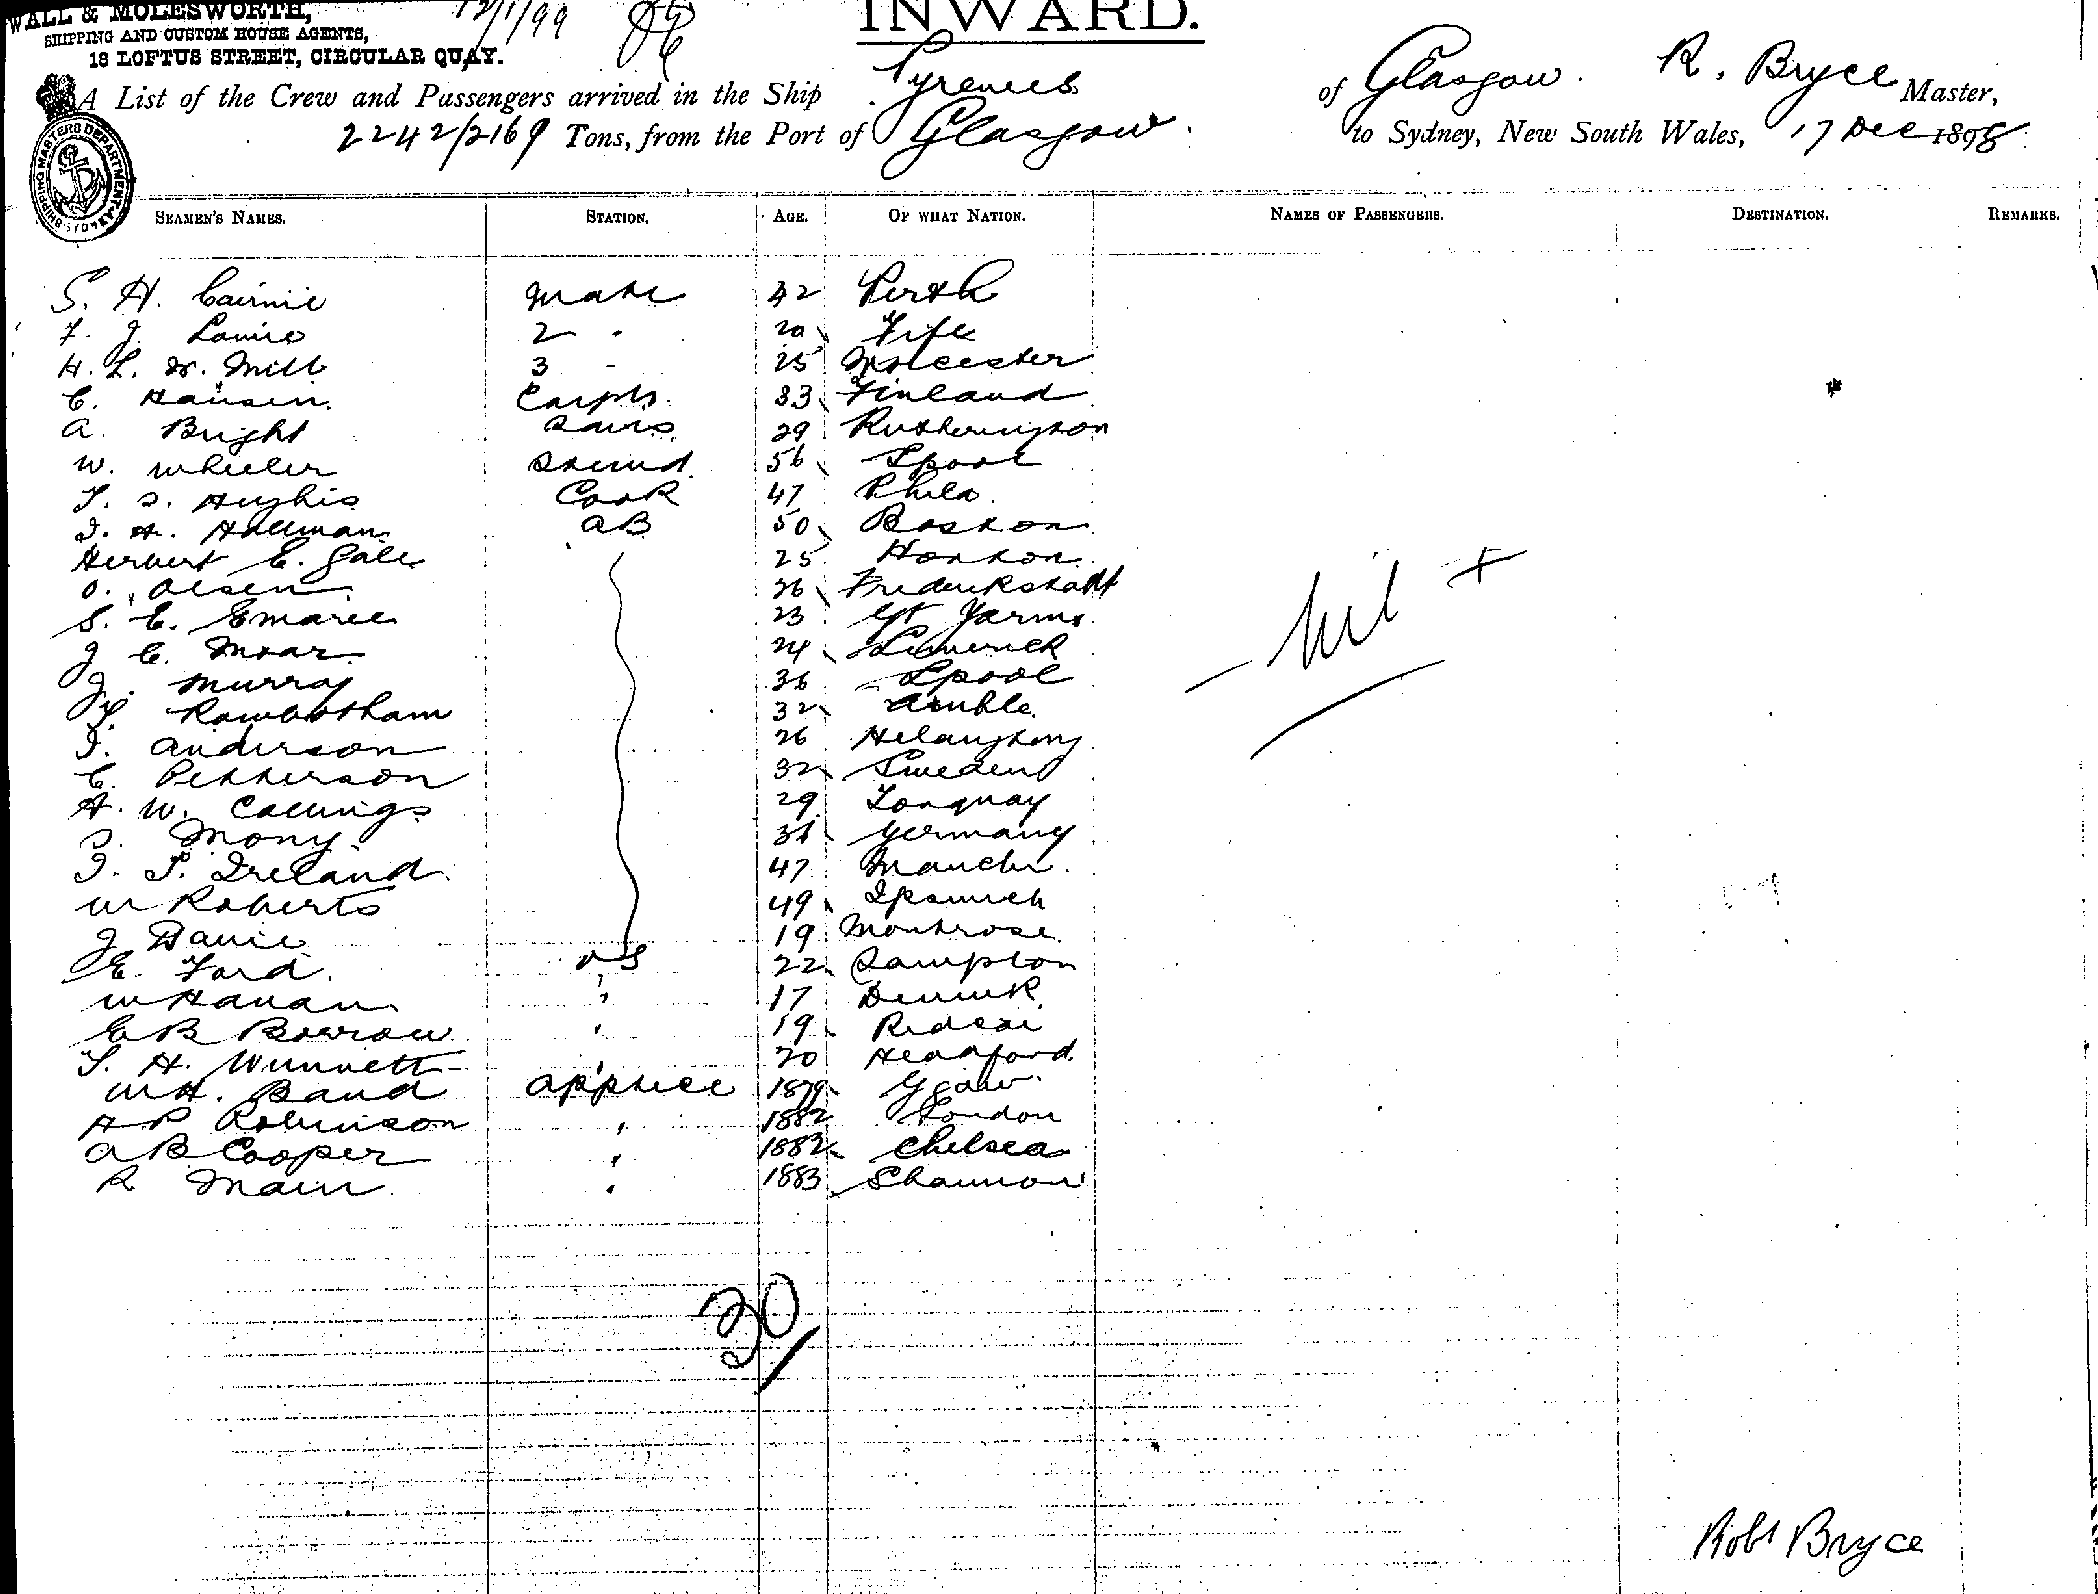 WALL & MOLESWORTH,
SHIPPING AND CUSTOM HOUSE AGENTS,
18 LOFTUS STREET, CIRCULAR QUAY.
12/1/99
INWARD.
A List of the Crew and Passengers arrived in the Ship Pyrenees of Glasgow. R. Bryce Master,
2242/2169 Tons, from the Port of Glasgow. to Sydney, New South Wales, 17 Dec 1898
SHIPPING MASTERS DEPARTMENT
SEAMEN'S NAMES. STATION. AGE. OF WHAT NATION. NAMES OF PASSENGERS. DESTINATION. REMARKS.
S. H. Cairnie Mate 42 Perth
F. J. 2 " Fife
H. L. W. Mill 3 25 Worcester
C. Hansen Carptr 33 Finland
A. Bright 29
W. Wheeler Steward 56 Lpool
T. S. Hughes Cook 47 Phila.
J. H. Hallman AB 50 Boston
Herbert E. Gale 25
O. Olsen 26 Frederikstadt
S. E. Emaree 23 Gt Yarm
J C. Moar 24 Limerick
J. Murray 36 Lpool
Rowbotham 32 Amble.
J. Anderson 26
C. Petterson 32 Sweden
H. W. Collings 29 Torquay
S. Mony 31 Germany
J. S. Ireland 47 Manchr.
W Roberts 49 Ipswich
J Davie 19 Montrose
E. Ford. OS 22
W Hanan " 17
E B Borrow " 19 Redcar
T. H. Wunnett " 20 Headford
W H. Band apptice 1879 Ggow
H P Robinson " 1882 London
A B Cooper " 1882 Chelsea
R Main " 1883 Shannon
- Nil +
30/
Robt Bryce